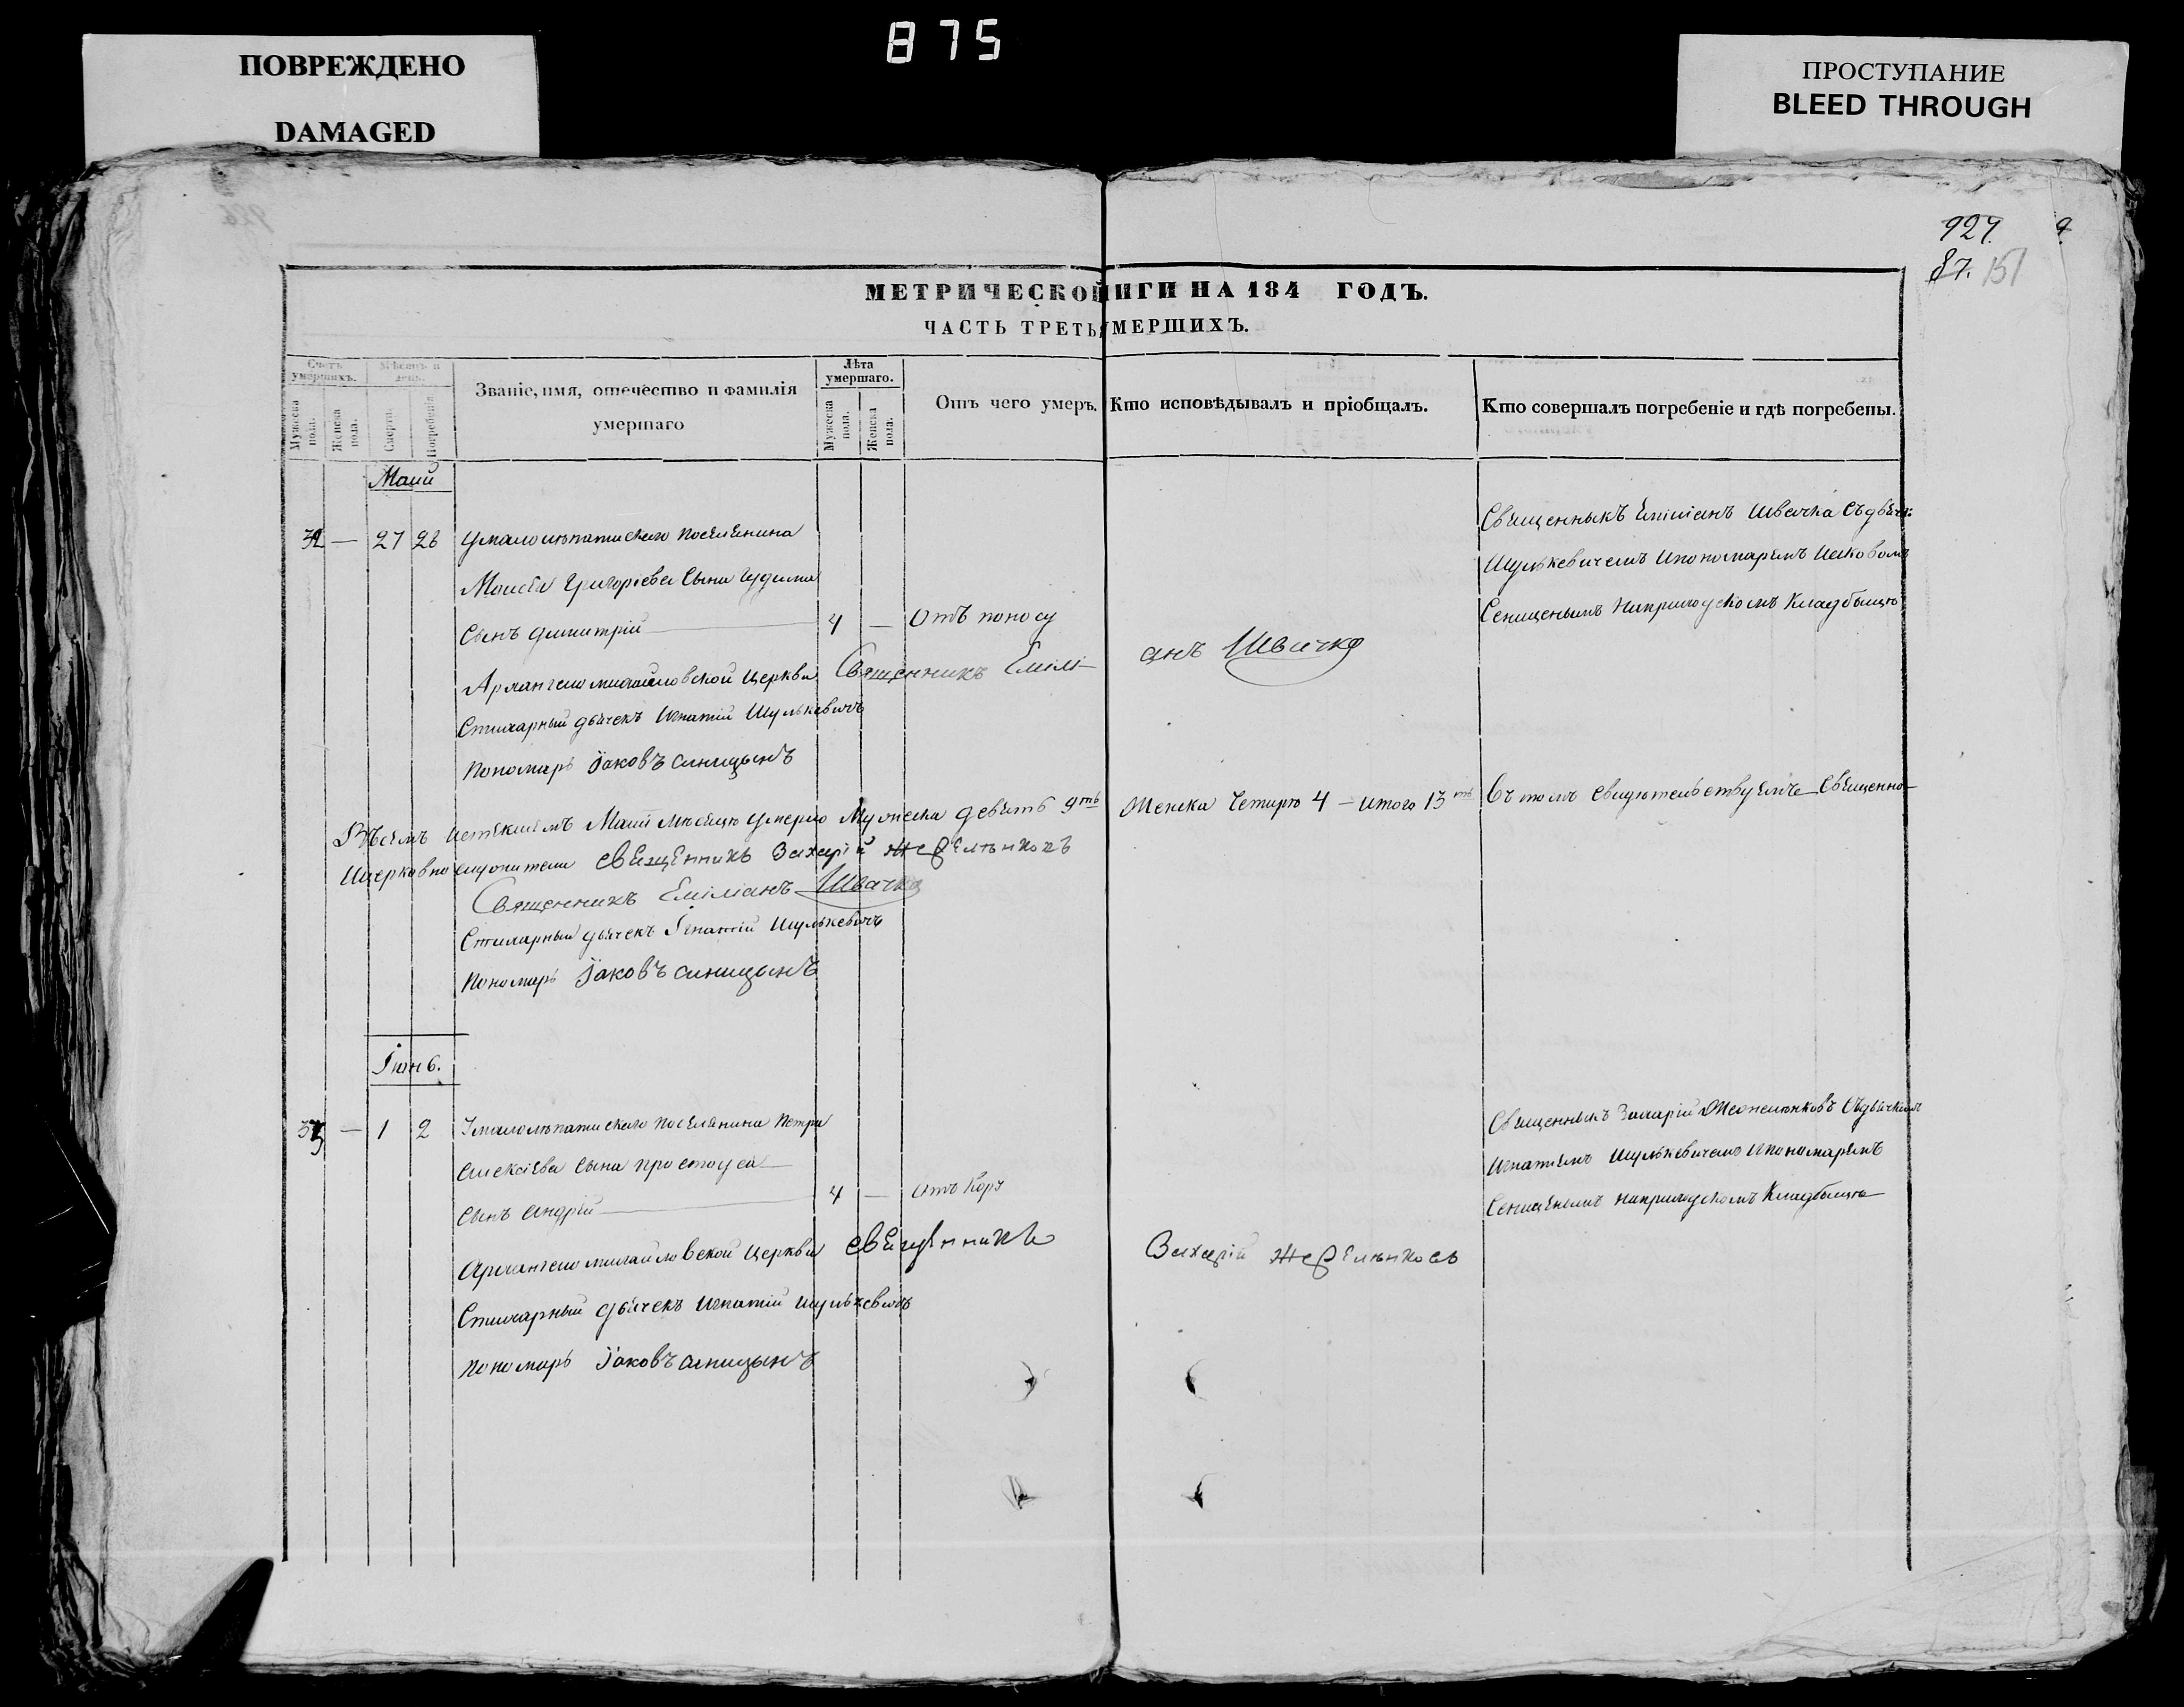 875
ПОВРЕЖДЕНО
DAMAGED
ПРОСТУПАНИЕ
BLEED THROUGH
924.
87. 151
МЕТРИЧЕСКОЙ ИГИ НА 184 ГОДЪ.
ЧАСТЬ ТРЕТЬ МЕРШИХЪ.
Счетъ умершихъ.
Мѣсяцъ и день.
Званіе, имя, отечество и фамилія умершаго
Лѣта умершаго.
Отъ чего умеръ.
Кто исповѣдывалъ и пріобщалъ.
Кто совершалъ погребеніе и гдѣ погребены.
Мужеска пола.
Женска пола.
Смерти.
Погребенія.
Мужеска пола.
Женска пола.
Маии
32 — 27 28 Умалолѣпатискаго поселянина
Моисея Григоріева Сына Гудима
Сынъ Димитрій 4 — Отъ поносу
Священныкъ Еміліанъ Швачка Съ дьячк:
Шулькевичемъ Ипономаремъ Иаковомъ
Сеницынымъ Наприходскомъ Кладбыщѣ
Архангеломихайловской Церкви Священникъ Емілі-
анъ Швачка
Стихарный дьячекъ Игнатій Шулькевичъ
Пономарь Іаковъ Синицынъ
Въсемъ истекшемъ Маии мѣсяцѣ умерло Мужеска девять 9ть
Женска Четыре 4 — итого 13ть Въ томъ свидѣтельствуемъ Священно-
Ицерковнослужители Священникъ Захарій
Священникъ Еміліанъ Швачка
Стихарный дьячекъ Ігнатій Шулькевичъ
Пономарь Іаковъ Синицынъ
Іюнь.
33 — 1 2 Умалолѣпатискаго поселянина Петра
Алексіева Сына
Сынъ Андрій 4 — Отъ Кору
Священныкъ Захарій Съ дьячкомъ
Игнатіемъ Шулькевичемъ Ипономаремъ
Сеницынымъ Наприходскомъ Кладбыщѣ
Архангеломихайловской Церкви Священникъ
Захарій
Стихарный дьячекъ Игнатій Шулькевичъ
Пономарь Іаковъ Синицынъ